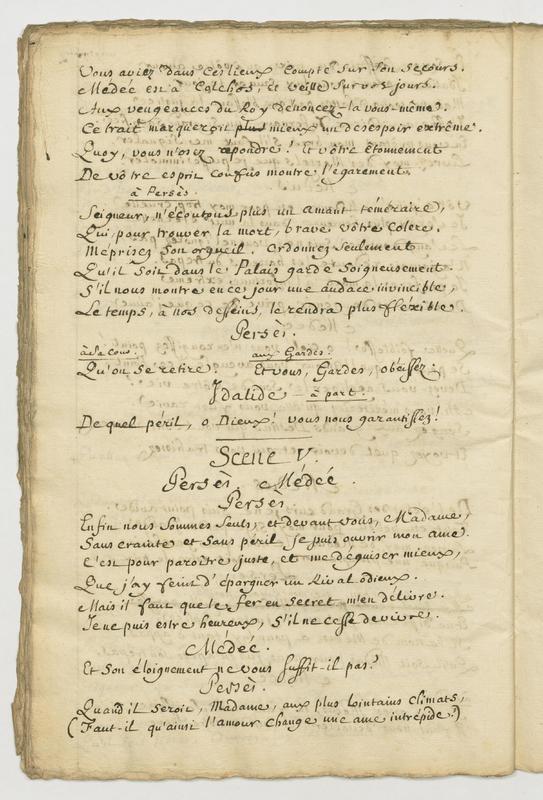 Vous aviez dans ces lieux compté sur son secours.
Médée en a Colchos, et veille sur vos jours.
Aux vengeances du Roy dénoncez-la vous-même.
Ce trait marqueroit mieux un desespoir extrême.
Quoy, vous n'osez repondre! Et vôtre étonnement
De vôtre esprit confus montre l'égarement.
à Persès.
Seigneur, n'écoutons plus un amant teméraire,
Qui, pour trouver la mort, brave vôtre colere.
Méprisez son orgueil. Ordonnez seulement
Qu'il soit dans le Palais gardé soigneusement.
S'il nous montre en ce jour une audace invincible,
Le temps, à nos desseins, le rendra plus fléxible.
Persès.
à sa Cour. aux Gardes.
Qu'on se retire. Et vous, Gardes, obéissez.
Idalide à part.
De quel péril, o Dieux! vous nous garantissez!
Scene V.
Persès, Médée.
Persès.
Enfin nous sommes seuls, et devant vous, Madame,
Sans crainte et sans péril je puis ouvrir mon ame.
C'est pour paroître juste, et me déguiser mieux,
Que j'ay feint d'épargner un Rival odieux.
Mais il faut que le fer en secret m'en délivre.
Je ne puis estre heureux, s'il ne cesse de vivre.
Médée.
Et son éloignement ne vous suffit-il pas?
Persès.
Quand il seroit, Madame, aux plus lointains climats,
(Faut-il qu'ainsi l'amour change une ame intrépide?)